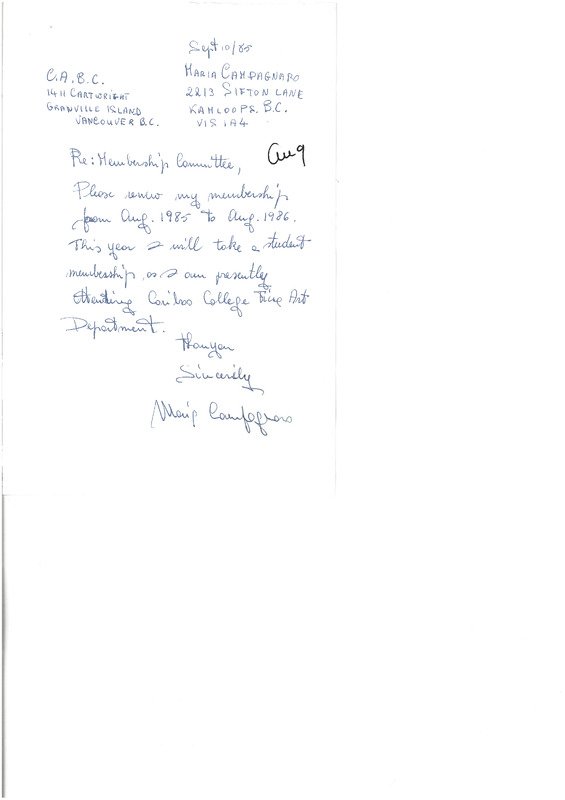 Sept 10/85
C.A.B.C.
1411 CARTWRIGHT
GRANVILLE ISLAND
VANCOUVER B.C.
MARIA CAMPAGNARO
2213 SIFTON LANE
KAMLOOPS. B.C.
V1S 1A4
Re: Membership Committee,
Aug
Please renew my membership
from Aug. 1985 to Aug. 1986.
This year I will take a student
membership, as I am presently
Attending Cariboo College Fine Art
Department.
Thanyou
Sincerely
Maria Campagnaro